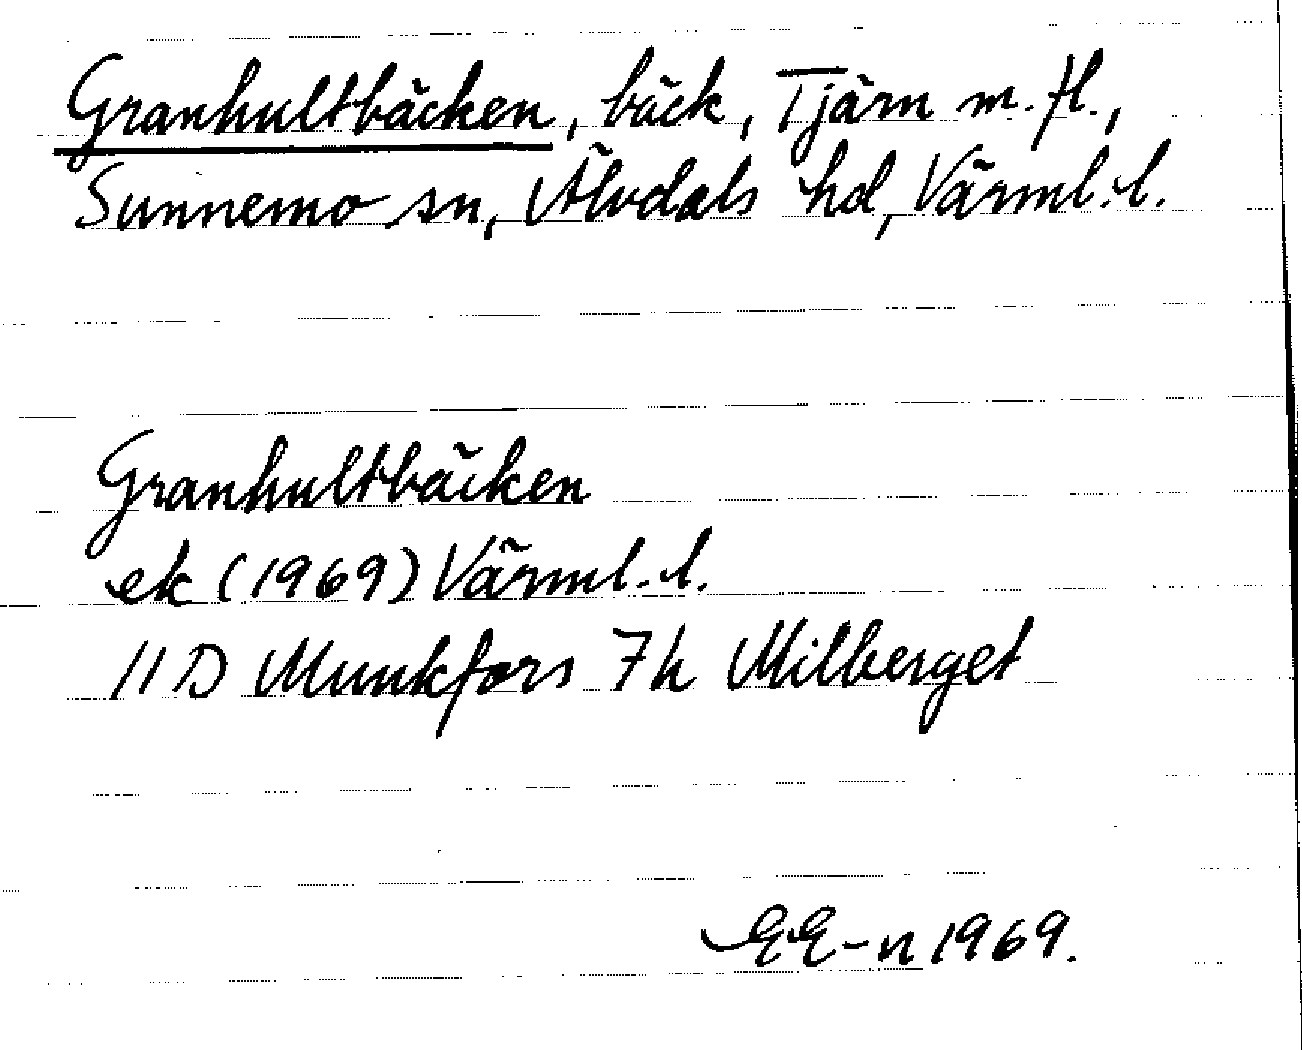 Granhultbäcken, bäck, Tjärn m. fl.,
Sunnemo sn, Älvdals hd, Värml. l.
Granhultbäcken
ek (1969) Värml. l.
11 D Munkfors 7 h Milberget
EE-n 1969.